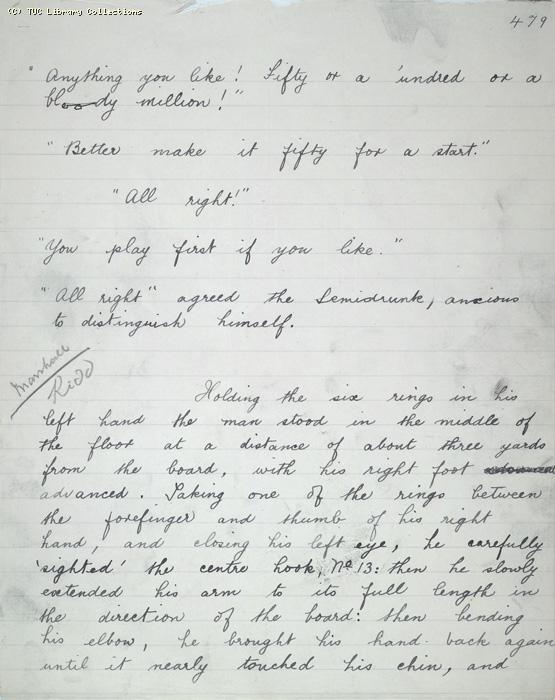 (C) TUC Library Collections
479
"Anything you like! Fifty or a 'undred or a
bloody million!"
"Better make it fifty for a start."
"All right!"
"You play first if you like."
"All right" agreed the Semidrunk, anxious
to distinguish himself.
Marshall
Kidd
Holding the six rings in his
left hand the man stood in the middle of
the floor at a distance of about three yards
from the board, with his right foot
advanced. Taking one of the rings between
the forefinger and thumb of his right
hand, and closing his left eye, he carefully
'sighted' the centre hook, No 13: then he slowly
extended his arm to its full length in
the direction of the board: then bending
his elbow, he brought his hand back again
until it nearly touched his chin, and